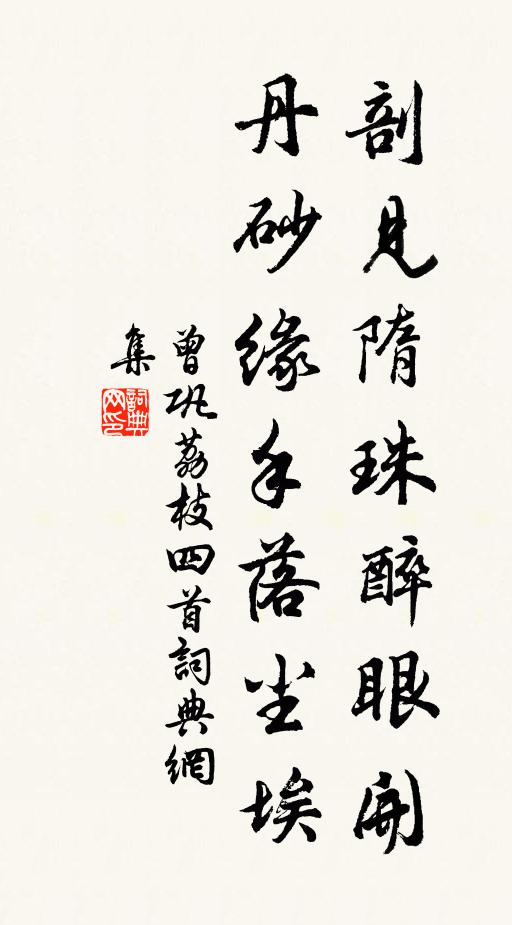 剖見隋珠醉眼開
丹砂緣手落塵埃
曾巩荔枝四首詞典網
集
詞典
网印